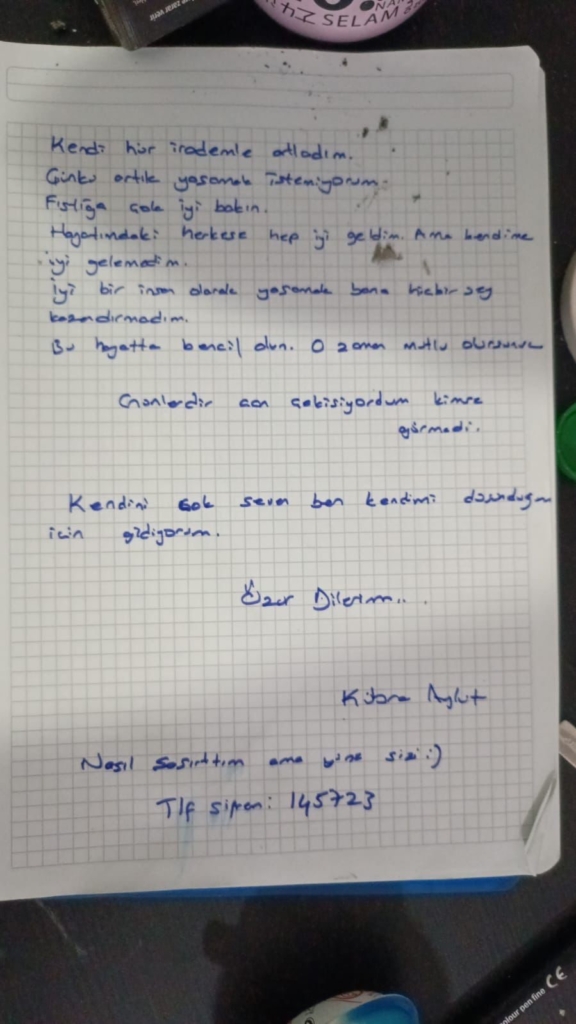 SELAM
Kendi hür irademle atladım.
Çünkü artık yaşamak istemiyorum.
Fıstığa çok iyi bakın.
Hayatımdaki herkese hep iyi geldim. Ama kendime
iyi gelemedim.
iyi bir insan olarak yaşamak bana hiçbir şey
kazandırmadım.
Bu hayatta bencil olun. O zaman mutlu olursunuz
Günlerdir can çekişiyordum kimse
görmedi.
Kendini çok seven ben kendimi düşündüğüm
için gidiyorum.
Özür Dilerim...
Kübra
Nasıl şaşırttım ama yine sizi :)
Tlf şifrem: 145723
olour pen fine CE